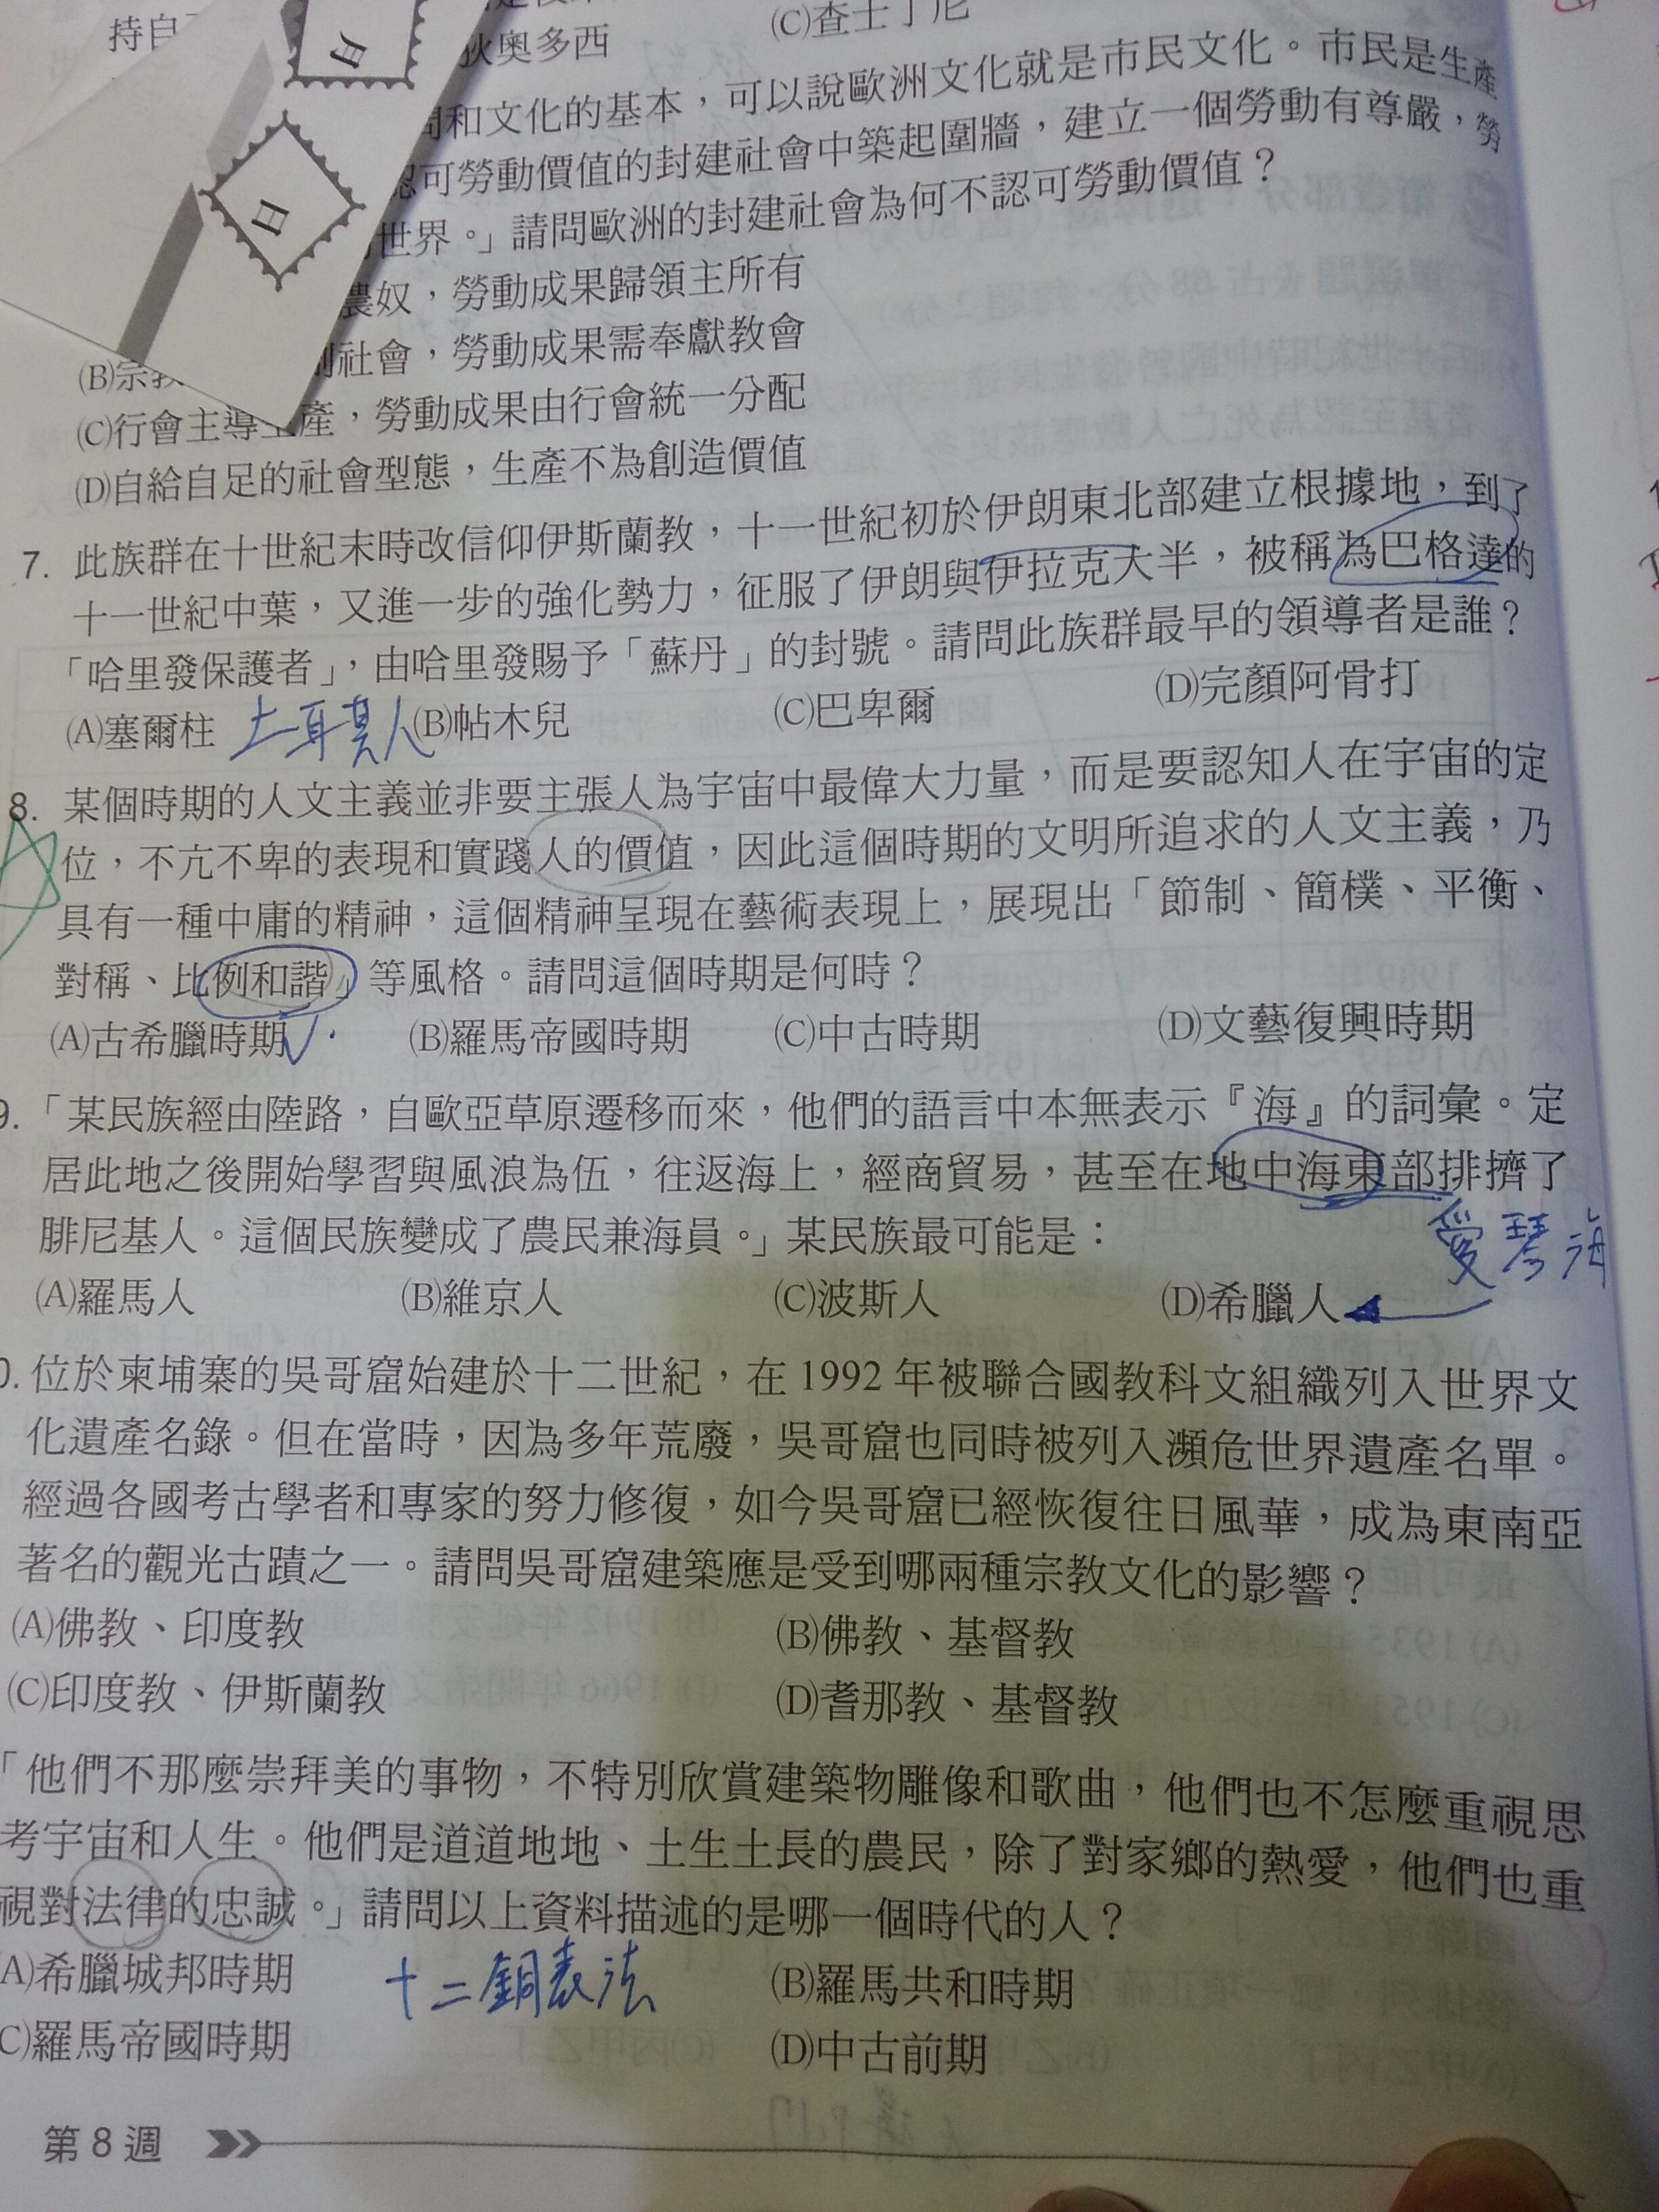 持自
狄奧多西
(C)查士丁尼
和文化的基本，可以說歐洲文化就是市民文化。市民是生產
認可勞動價值的封建社會中築起圍牆，建立一個勞動有尊嚴，勞
世界。」請問歐洲的封建社會為何不認可勞動價值？
農奴，勞動成果歸領主所有
(B)宗教 制社會，勞動成果需奉獻教會
(C)行會主導生產，勞動成果由行會統一分配
(D)自給自足的社會型態，生產不為創造價值
7. 此族群在十世紀末時改信仰伊斯蘭教，十一世紀初於伊朗東北部建立根據地，到了
十一世紀中葉，又進一步的強化勢力，征服了伊朗與伊拉克大半，被稱為巴格達的
「哈里發保護者」，由哈里發賜予「蘇丹」的封號。請問此族群最早的領導者是誰？
(A)塞爾柱 土耳其人 (B)帖木兒 (C)巴卑爾 (D)完顏阿骨打
8. 某個時期的人文主義並非要主張人為宇宙中最偉大力量，而是要認知人在宇宙的定
位，不亢不卑的表現和實踐人的價值，因此這個時期的文明所追求的人文主義，乃
具有一種中庸的精神，這個精神呈現在藝術表現上，展現出「節制、簡樸、平衡、
對稱、比例和諧」等風格。請問這個時期是何時？
(A)古希臘時期 (B)羅馬帝國時期 (C)中古時期 (D)文藝復興時期
9. 「某民族經由陸路，自歐亞草原遷移而來，他們的語言中本無表示『海』的詞彙。定
居此地之後開始學習與風浪為伍，往返海上，經商貿易，甚至在地中海東部排擠了
腓尼基人。這個民族變成了農民兼海員。」某民族最可能是：
愛琴海
(A)羅馬人 (B)維京人 (C)波斯人 (D)希臘人
0. 位於柬埔寨的吳哥窟始建於十二世紀，在 1992 年被聯合國教科文組織列入世界文
化遺產名錄。但在當時，因為多年荒廢，吳哥窟也同時被列入瀕危世界遺產名單。
經過各國考古學者和專家的努力修復，如今吳哥窟已經恢復往日風華，成為東南亞
著名的觀光古蹟之一。請問吳哥窟建築應是受到哪兩種宗教文化的影響？
(A)佛教、印度教 (B)佛教、基督教
(C)印度教、伊斯蘭教 (D)耆那教、基督教
「他們不那麼崇拜美的事物，不特別欣賞建築物雕像和歌曲，他們也不怎麼重視思
考宇宙和人生。他們是道道地地、土生土長的農民，除了對家鄉的熱愛，他們也重
視對法律的忠誠。」請問以上資料描述的是哪一個時代的人？
(A)希臘城邦時期 十二銅表法 (B)羅馬共和時期
(C)羅馬帝國時期 (D)中古前期
第 8 週